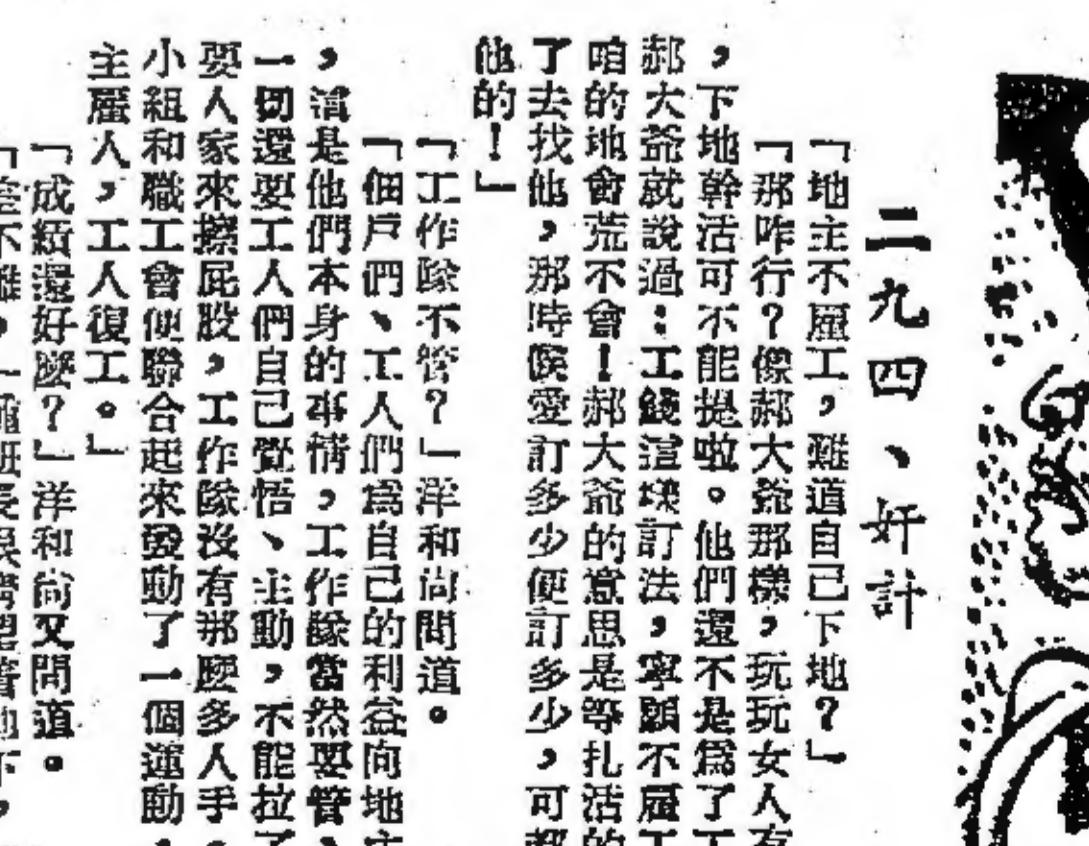 二九四、奸計
「地主不雇工，難道自己下地？」
「那咋行？像郝大爺那樣，玩玩女人有
，下地幹活可不能提啦。他們還不是爲了工
郝大爺就說過：工錢這樣訂法，寧願不雇工
咱的地會荒不會！郝大爺的意思是等扎活的
了去找他，那時候愛訂多少便訂多少，可都
他的！」
「工作隊不管？」洋和尚問道。
「佃戶們、工人們爲自己的利益向地主
，這是他們本身的事情，工作隊當然要管、
一切還要工人們自己覺悟、主動，不能拉了
要人家來擦屁股，工作隊沒有那麼多人手。
小組和職工會便聯合起來發動了一個運動，
主雇人，工人復工。」
「成績還好麼？」洋和尚又問道。
「差不離，一